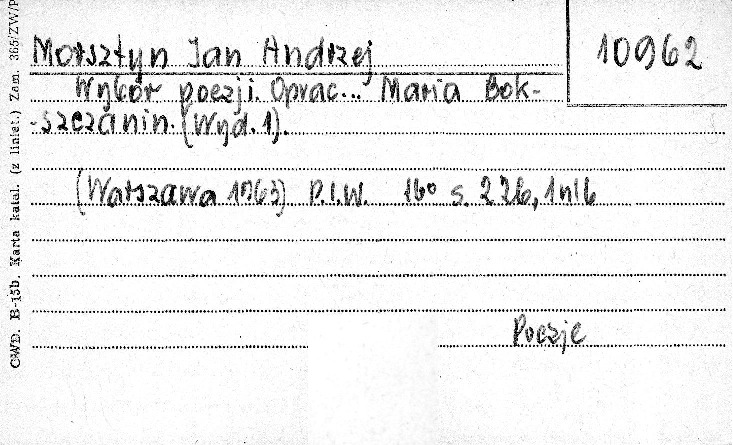 Morsztyn Jan Andrzej
10962
Wybór poezji. Oprac... Maria Bok-
-szczanin. (Wyd. 1).
(Warszawa 1963) P.I.W. 16° s. 226, 1nlb
Poezje
CWD. B-15b. Karta katal. (z liniat.) Zam. 365/ZW/P